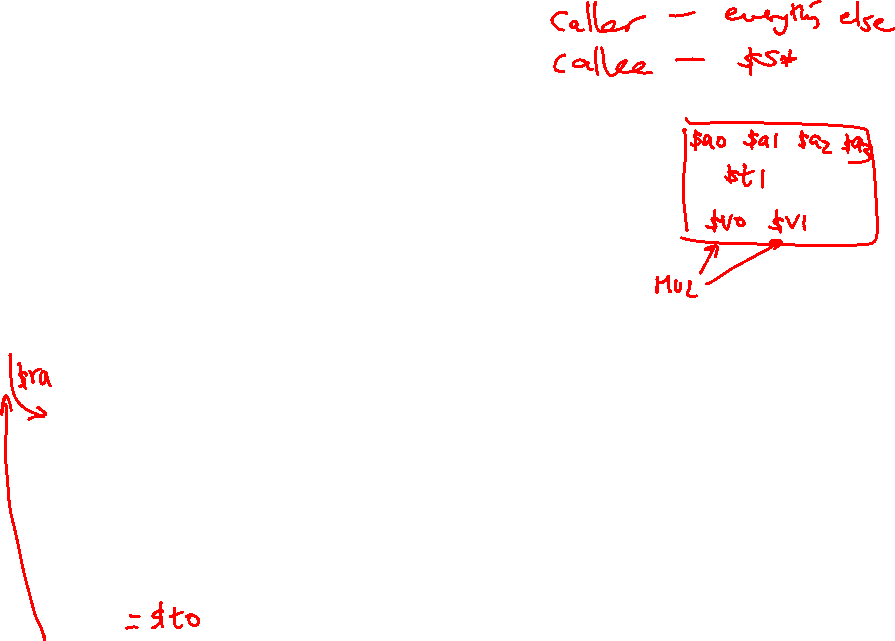 caller – everything else
callee – $s*
$a0 $a1 $a2 $a3
$t1
$v0 $v1
MUL
$ra
= $t0